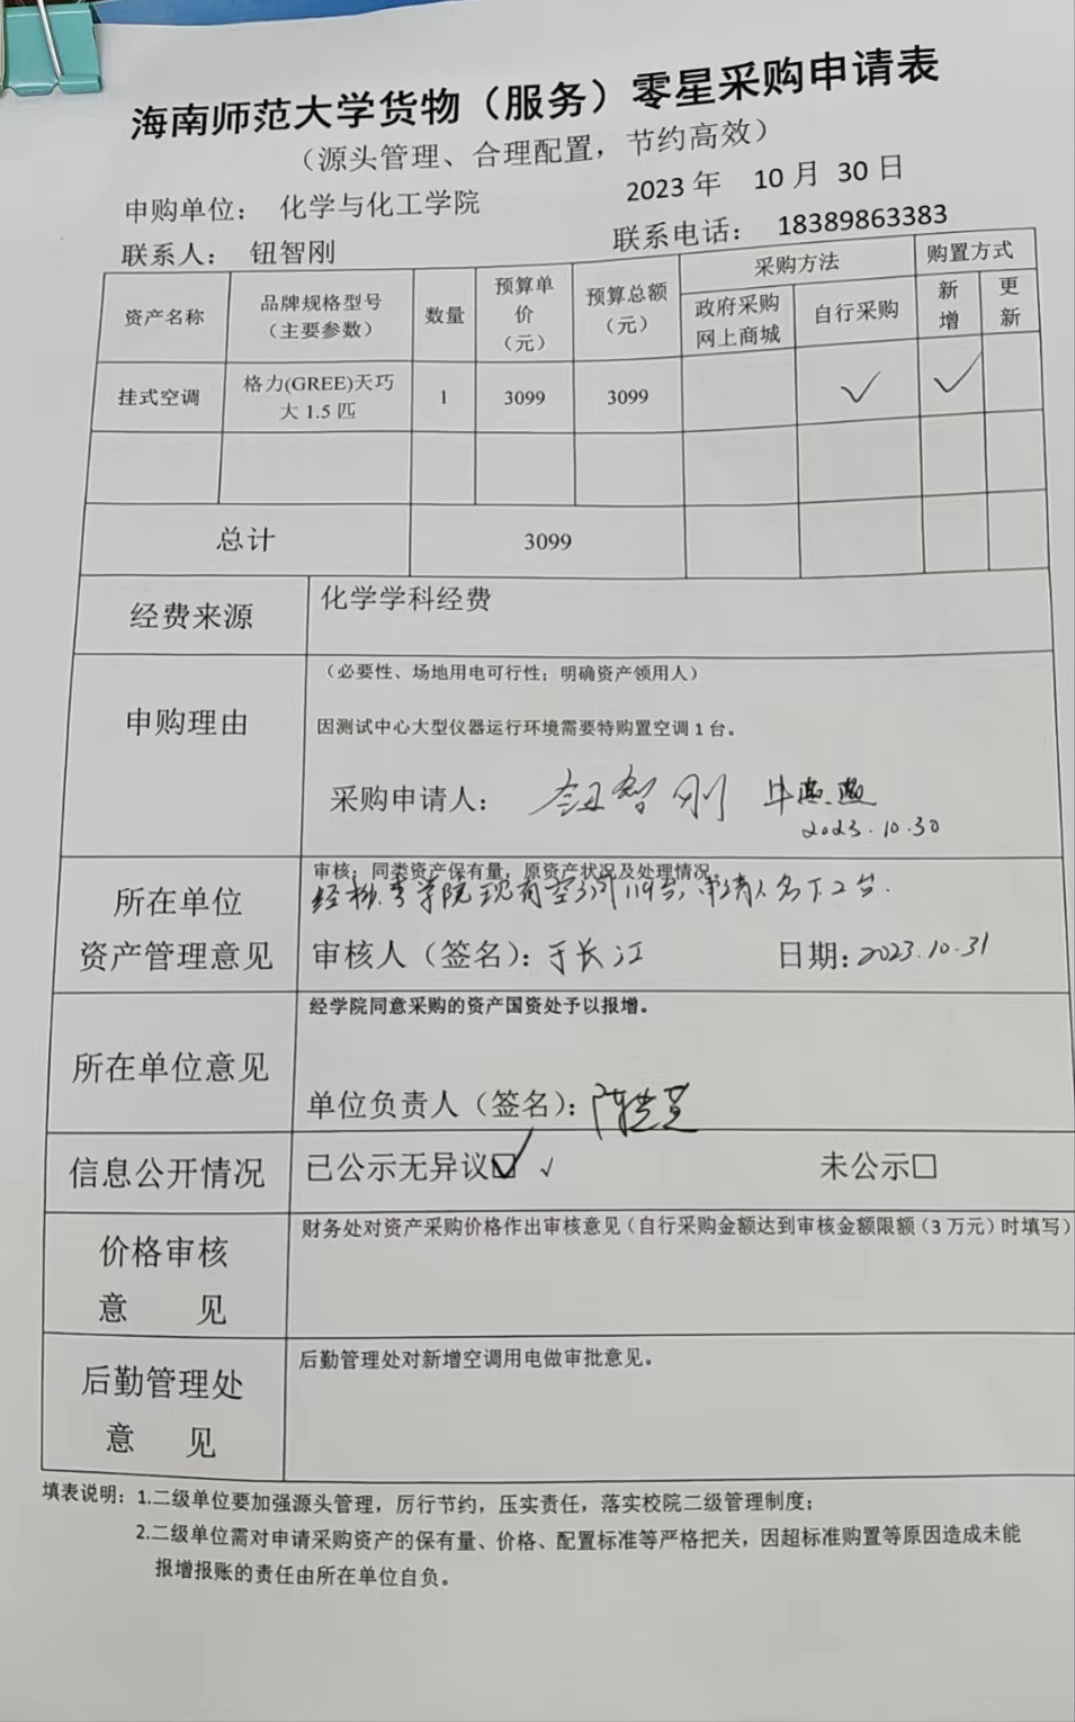 海南师范大学货物（服务）零星采购申请表
（源头管理、合理配置，节约高效）
申购单位： 化学与化工学院 2023 年 10 月 30 日
联系人： 钮智刚 联系电话： 18389863383
资产名称 品牌规格型号（主要参数） 数量 预算单价（元） 预算总额（元） 采购方法 购置方式
政府采购网上商城 自行采购 新增 更新
挂式空调 格力(GREE)天巧大 1.5 匹 1 3099 3099 ✓ ✓
总计 3099
经费来源 化学学科经费
申购理由
（必要性、场地用电可行性；明确资产领用人）
因测试中心大型仪器运行环境需要特购置空调 1 台。
采购申请人： 钮智刚 毕燕燕
2023.10.30
所在单位
资产管理意见
审核：同类资产保有量，原资产状况及处理情况。
经核查学院现有空调119台，申请人名下2台.
审核人（签名）：于长江 日期：2023.10.31
所在单位意见
经学院同意采购的资产国资处予以报增。
单位负责人（签名）：
信息公开情况 已公示无异议☑ √ 未公示□
价格审核
意 见
财务处对资产采购价格作出审核意见（自行采购金额达到审核金额限额（3 万元）时填写）
后勤管理处
意 见
后勤管理处对新增空调用电做审批意见。
填表说明：1.二级单位要加强源头管理，厉行节约，压实责任，落实校院二级管理制度；
2.二级单位需对申请采购资产的保有量、价格、配置标准等严格把关，因超标准购置等原因造成未能
报增报账的责任由所在单位自负。